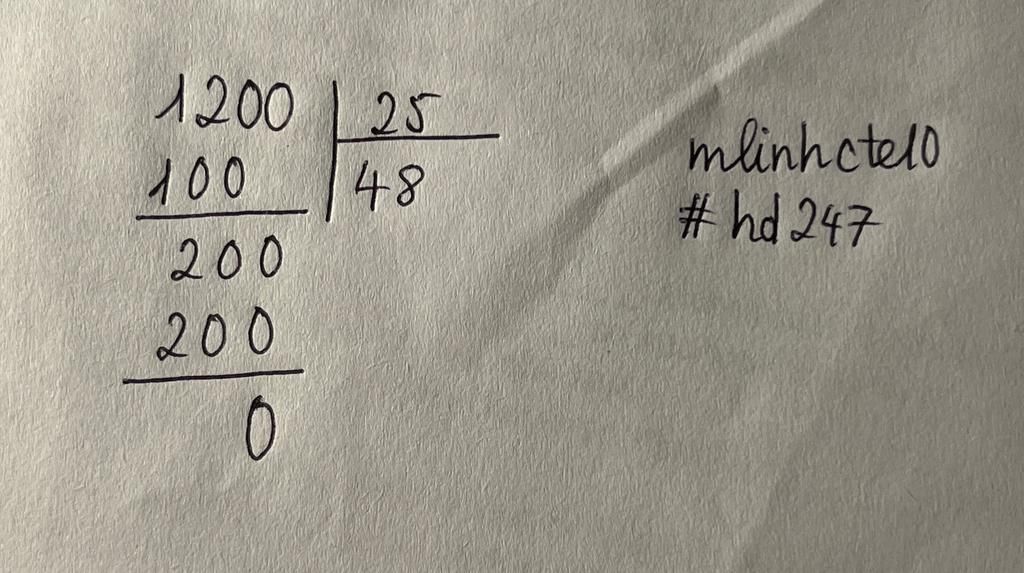 1200 25
100 48
200
200
0
mlinhcte10
#hd247